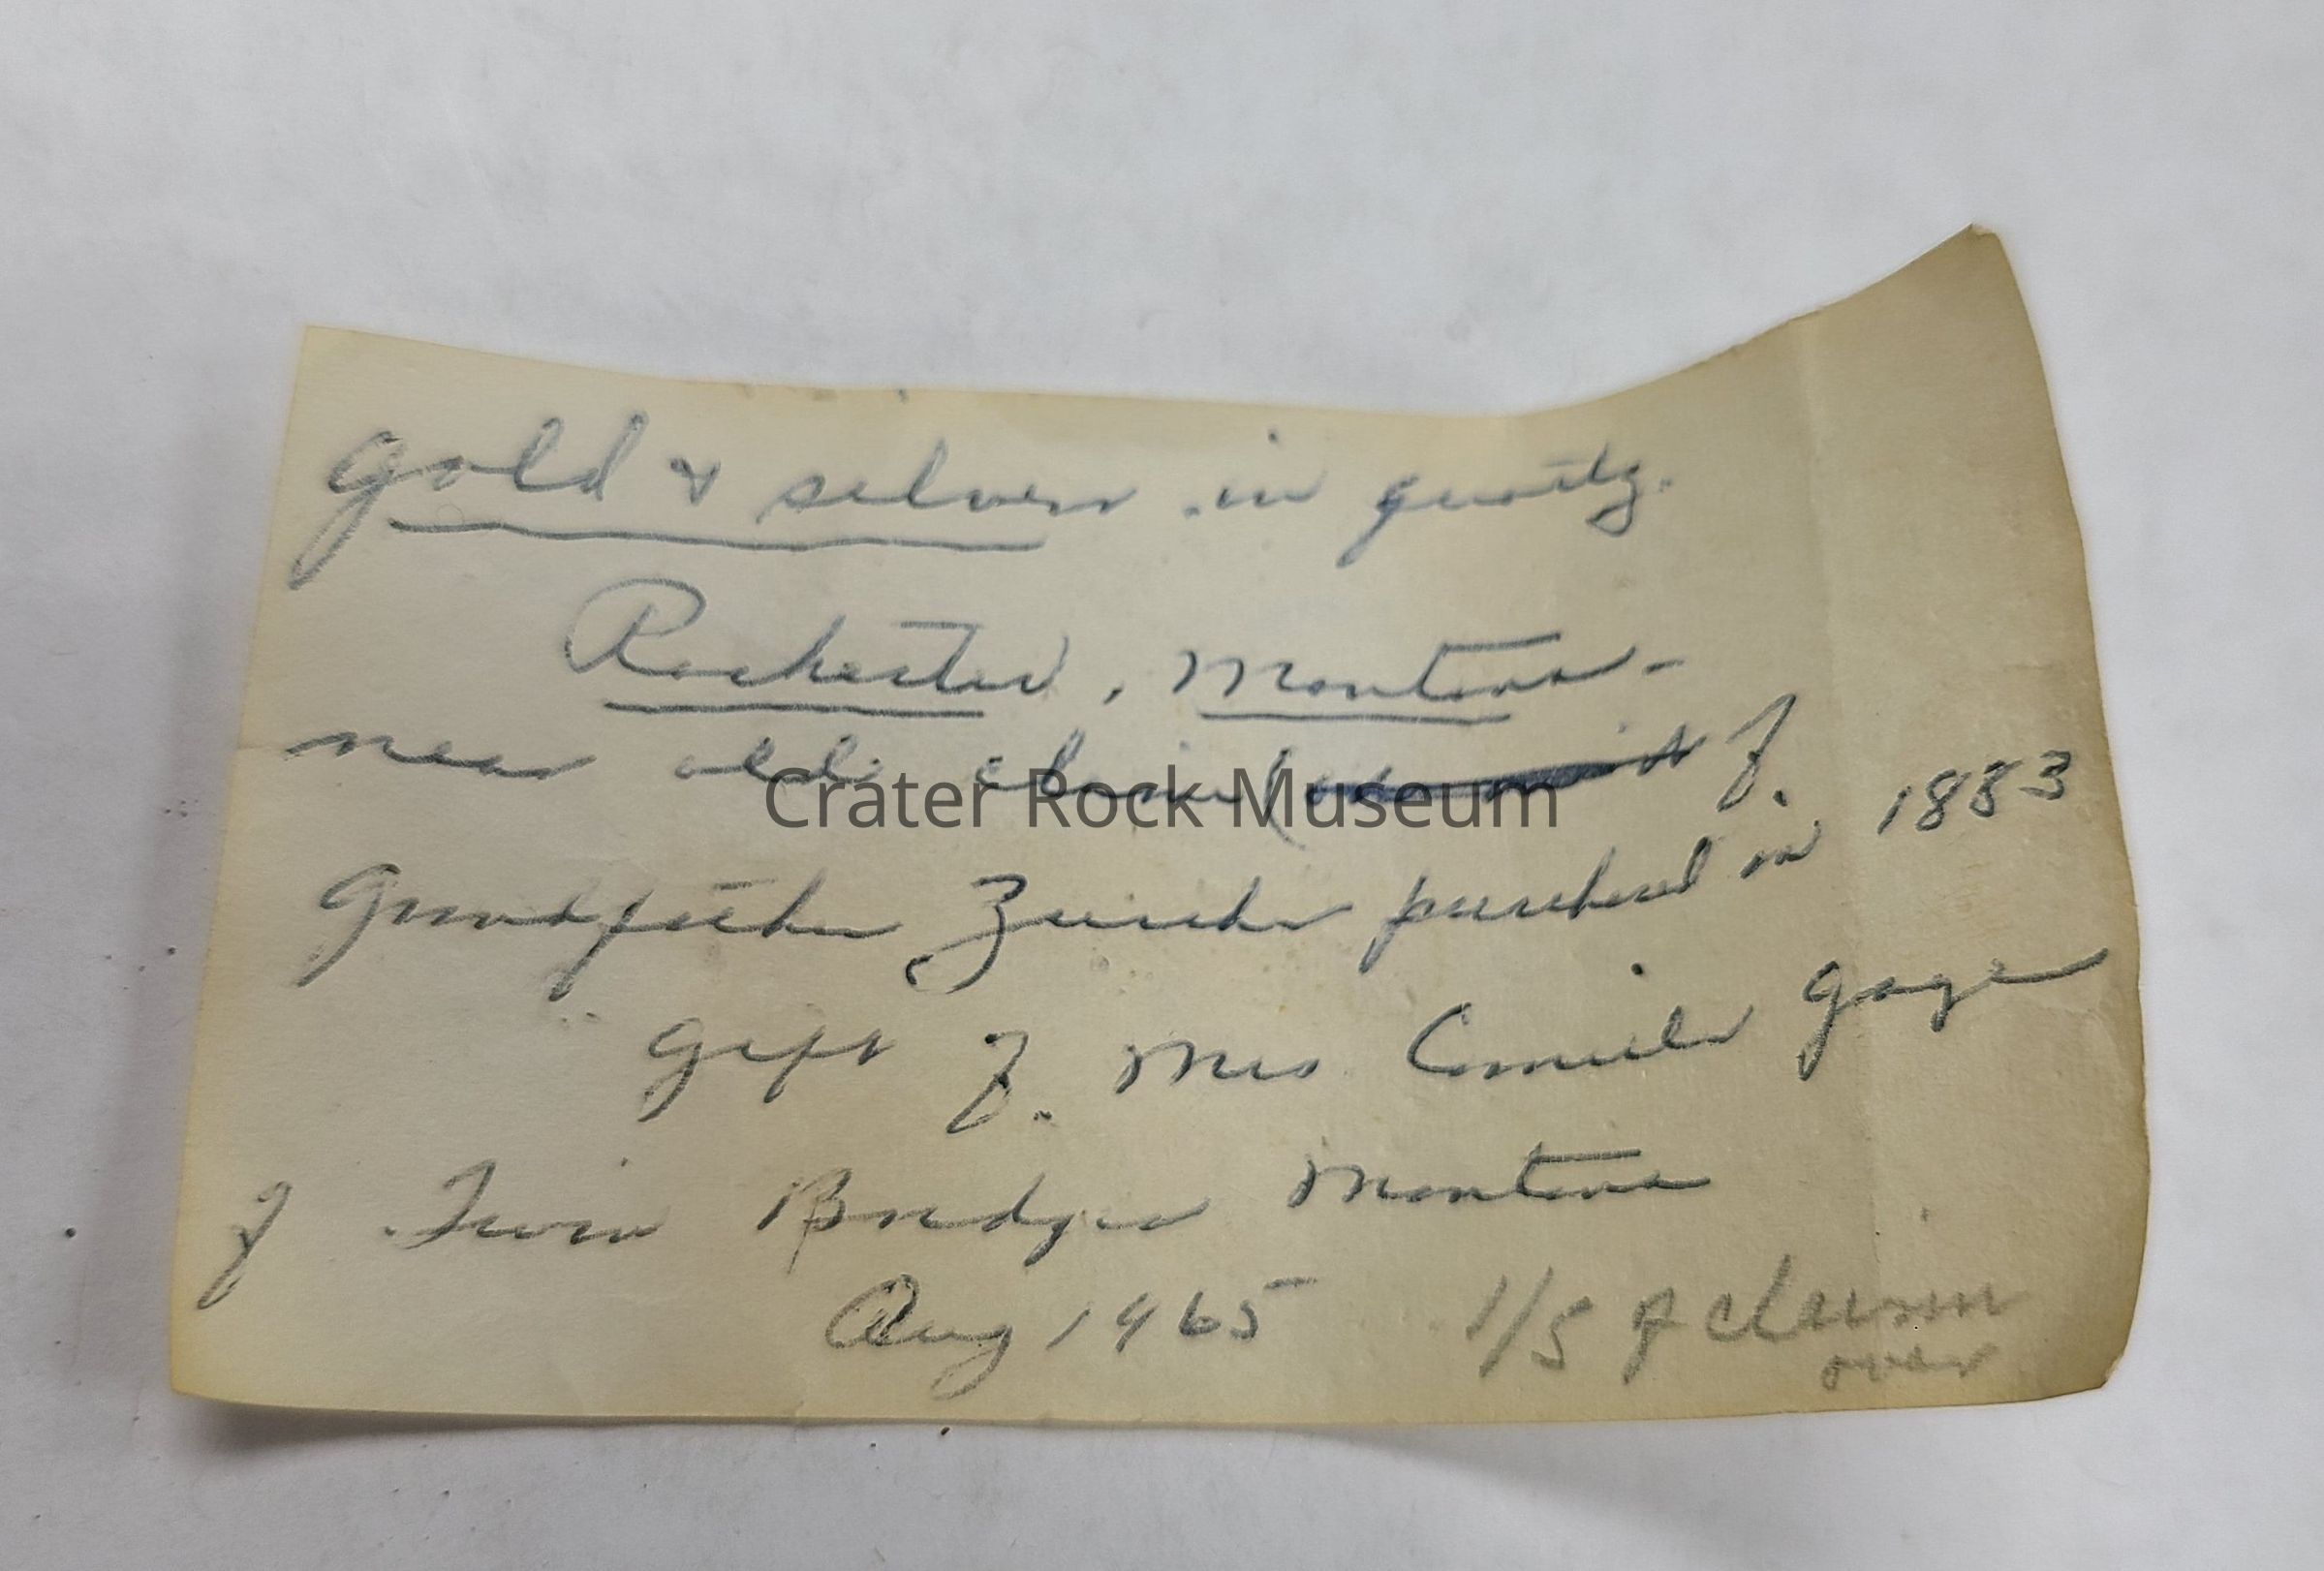 gold & silver in quartz.
Rochester, Montana -
near old claim of
Grandfather purchased in 1883
Gift of Mrs Gage
of Twin Bridges Montana
Aug 1965 1/5 of claim
over
Crater Rock Museum